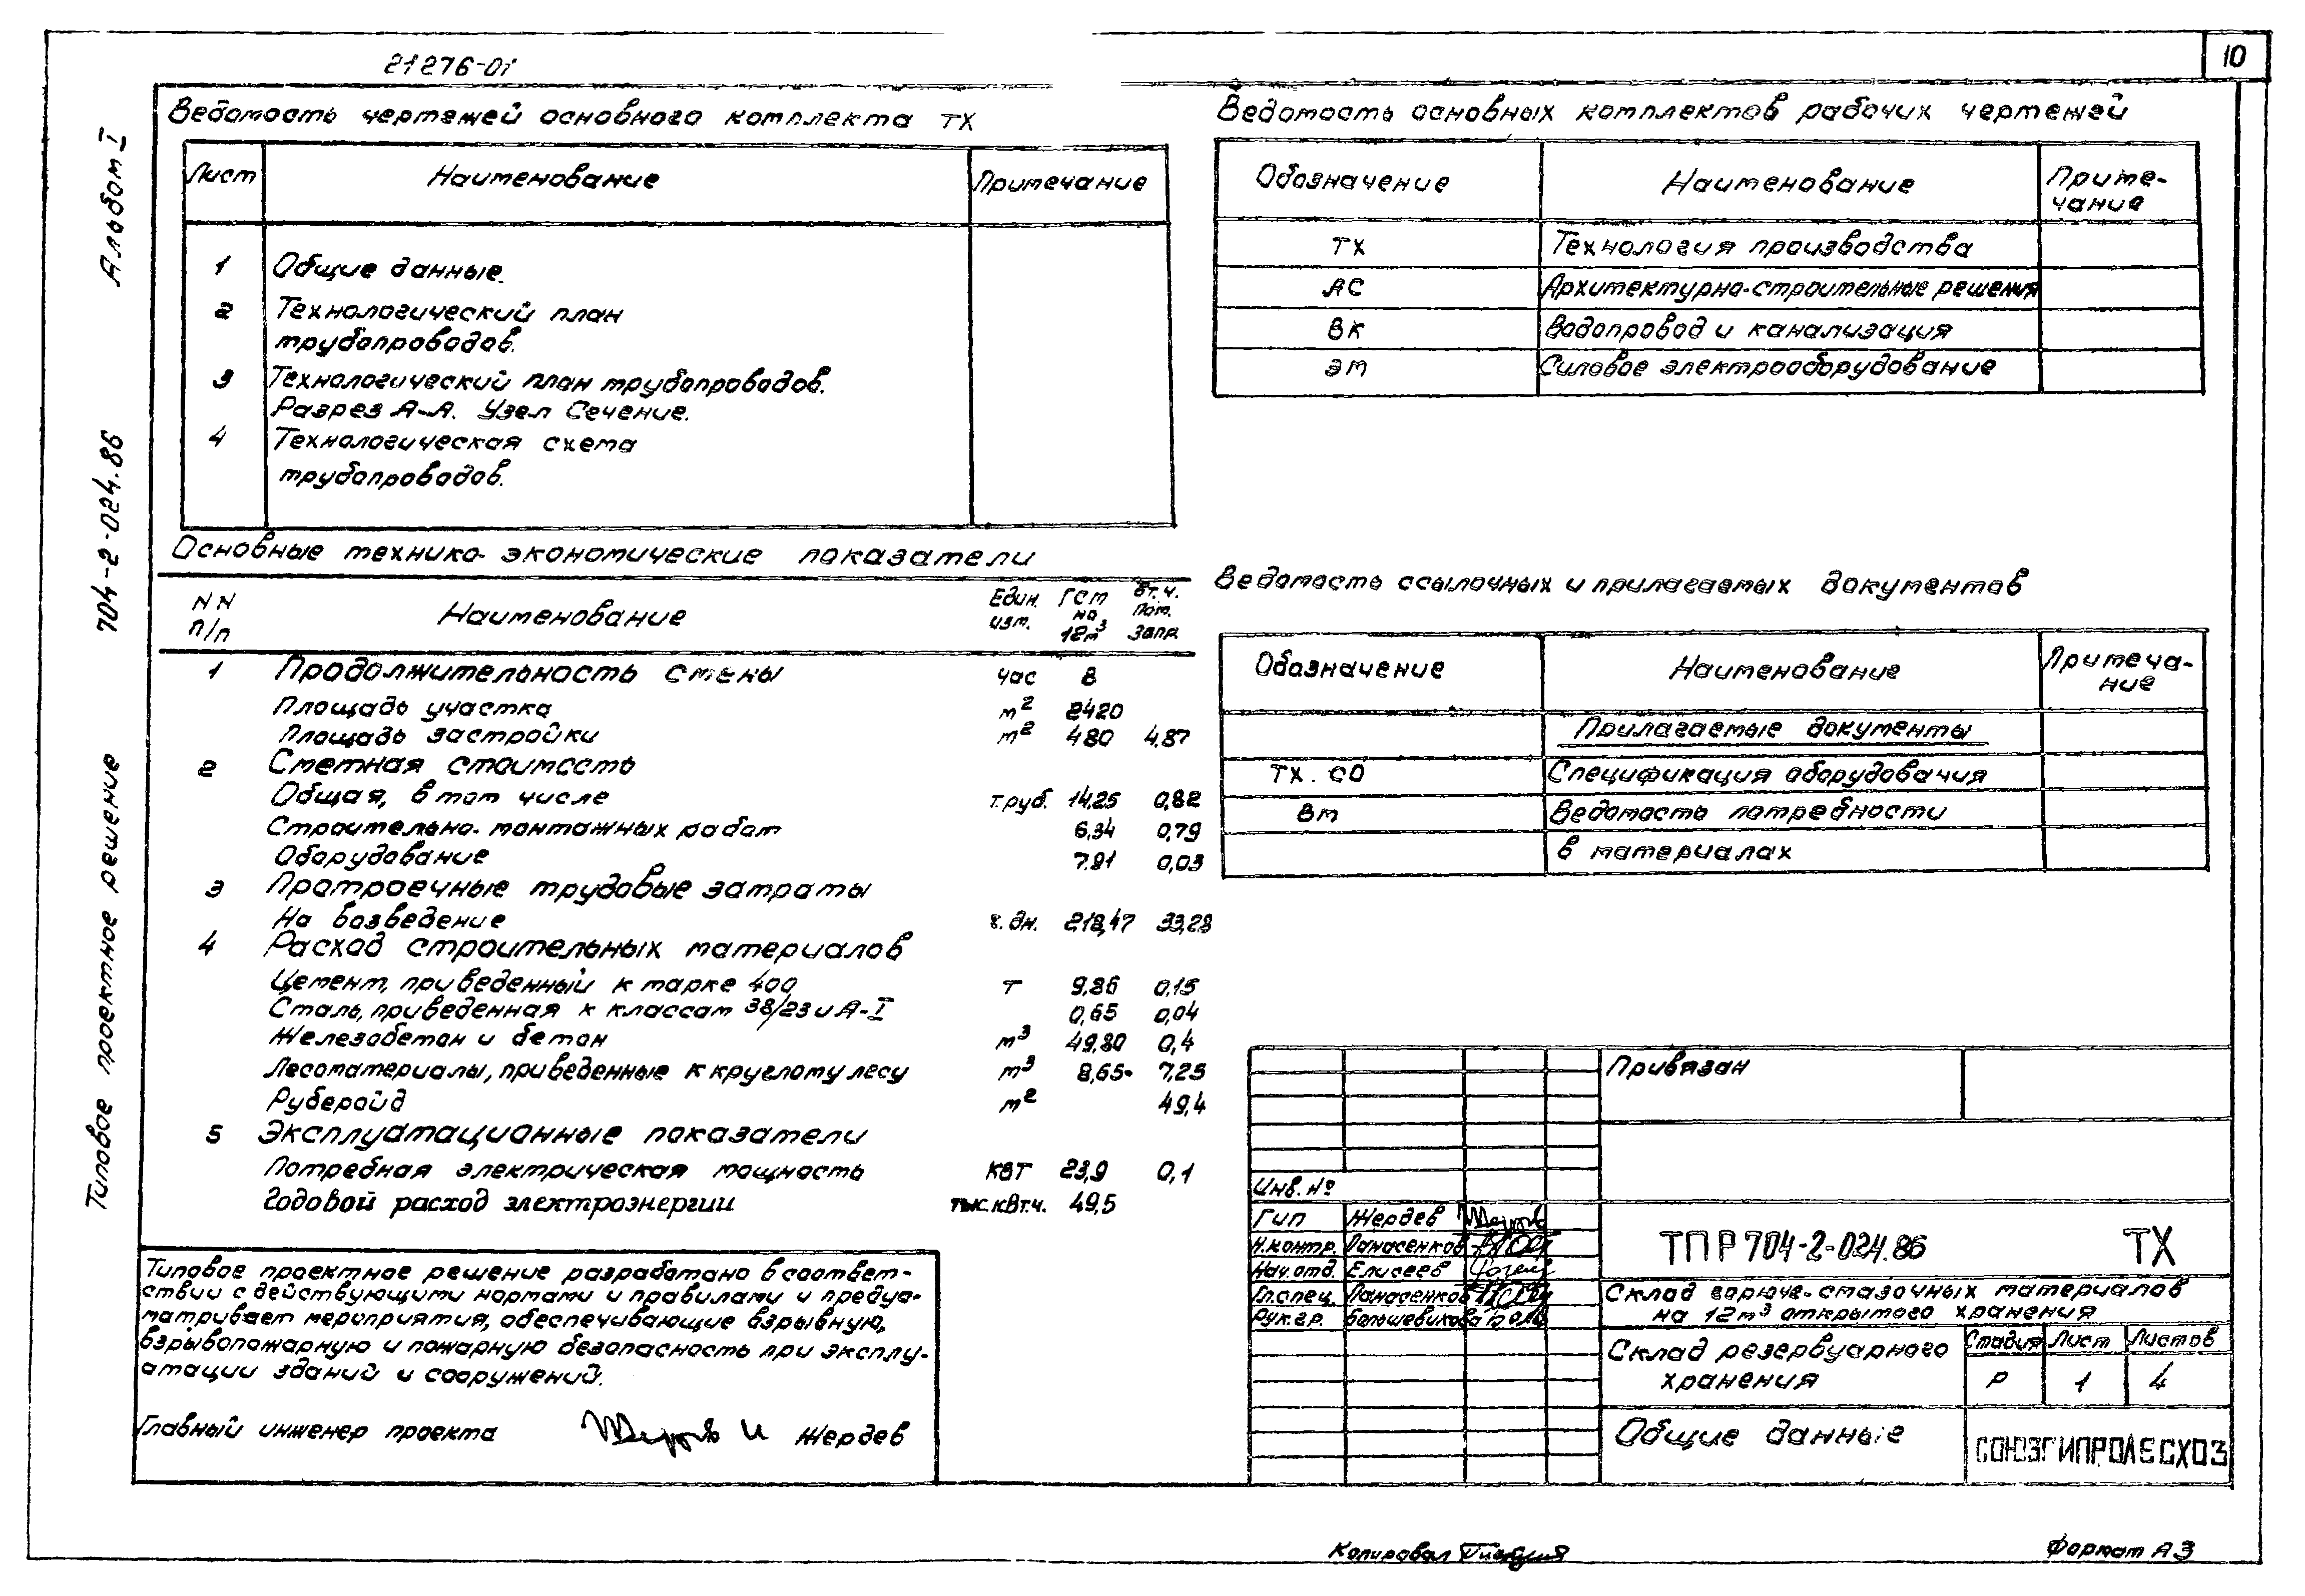 10
21276-01
Альбом I
704-2-024.86
Типовое проектное решение
Ведомость чертежей основного комплекта ТХ
Лист Наименование Примечание
1 Общие данные.
2 Технологический план
трубопроводов.
3 Технологический план трубопроводов.
Разрез А-А. Узел Сечение.
4 Технологическая схема
трубопроводов.
Основные технико-экономические показатели
NN Наименование Един. ГСМ Вт.ч.
п/п изм. на пот.
12м³ запр.
1 Продолжительность смены час 8
Площадь участка м² 2420
Площадь застройки м² 480 4,87
2 Сметная стоимость
Общая, в том числе т.руб. 14,25 0,82
Строительно-монтажных работ 6,34 0,79
Оборудование 7,91 0,03
3 Протроечные трудовые затраты
На возведение ч.дн. 218,47 33,28
4 Расход строительных материалов
Цемент, приведенный к марке 400 т 9,86 0,15
Сталь, приведенная к классам 38/23 и А-I 0,65 0,04
Железобетон и бетон м³ 49,80 0,4
Лесоматериалы, приведенные к круглому лесу м³ 8,65 7,25
Рубероид м² 49,4
5 Эксплуатационные показатели
Потребная электрическая мощность квт 23,9 0,1
Годовой расход электроэнергии тыс.квт.ч. 49,5
Типовое проектное решение разработано в соответ-
ствии с действующими нормами и правилами и преду-
матривает мероприятия, обеспечивающие взрывную,
взрывопожарную и пожарную безопасность при эксплу-
атации зданий и сооружений.
Главный инженер проекта Жердев
Ведомость основных комплектов рабочих чертежей
Обозначение Наименование Приме-
чание
ТХ Технология производства
АС Архитектурно-строительные решения
ВК Водопровод и канализация
ЭМ Силовое электрооборудование
Ведомость ссылочных и прилагаемых документов
Обозначение Наименование Примеча-
ние
Прилагаемые документы
ТХ.СО Спецификация оборудования
ВМ Ведомость потребности
в материалах
Привязан
Инв. №
Гип Жердев
Н.контр. Панасенков
Нач.отд. Елисеев
Гл.спец. Панасенков
Рук.гр. Большевикова
ТПР 704-2-024.86 ТХ
Склад горюче-смазочных материалов
на 12м³ открытого хранения
Склад резервуарного
хранения
Стадия Лист Листов
Р 1 4
Общие данные
СОЮЗГИПРОЛЕСХОЗ
Копировал
Формат А3